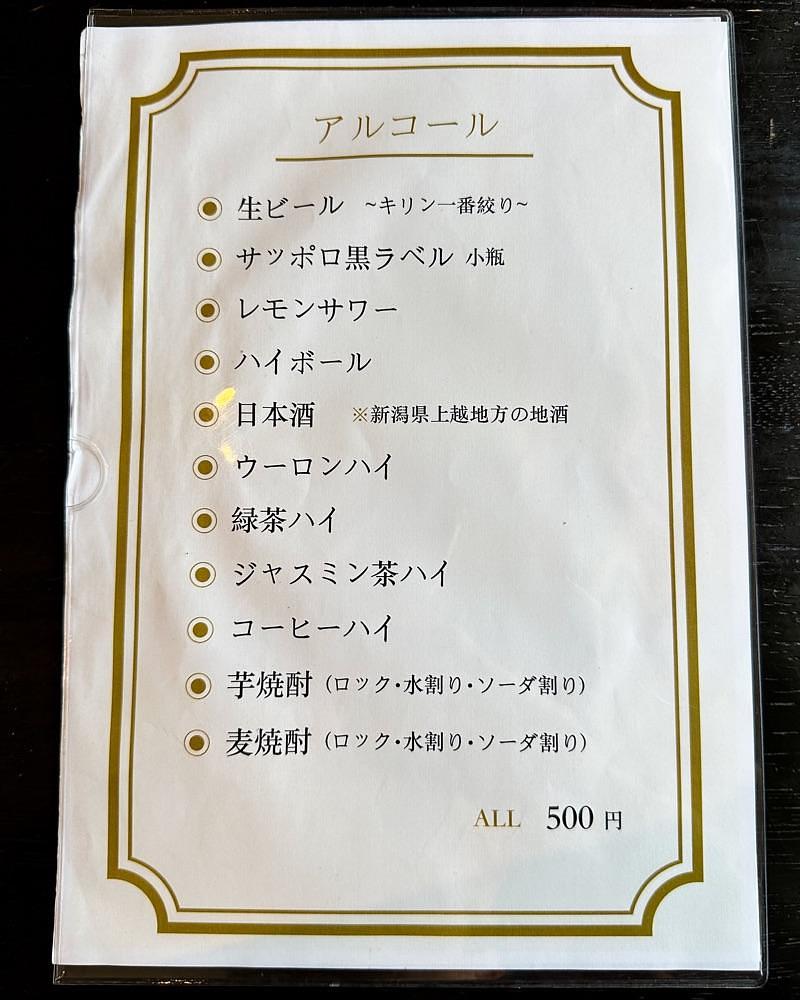 アルコール
生ビール ~キリン一番絞り~
サッポロ黒ラベル 小瓶
レモンサワー
ハイボール
日本酒 ※新潟県上越地方の地酒
ウーロンハイ
緑茶ハイ
ジャスミン茶ハイ
コーヒーハイ
芋焼酎（ロック・水割り・ソーダ割り）
麦焼酎（ロック・水割り・ソーダ割り）
ALL 500 円